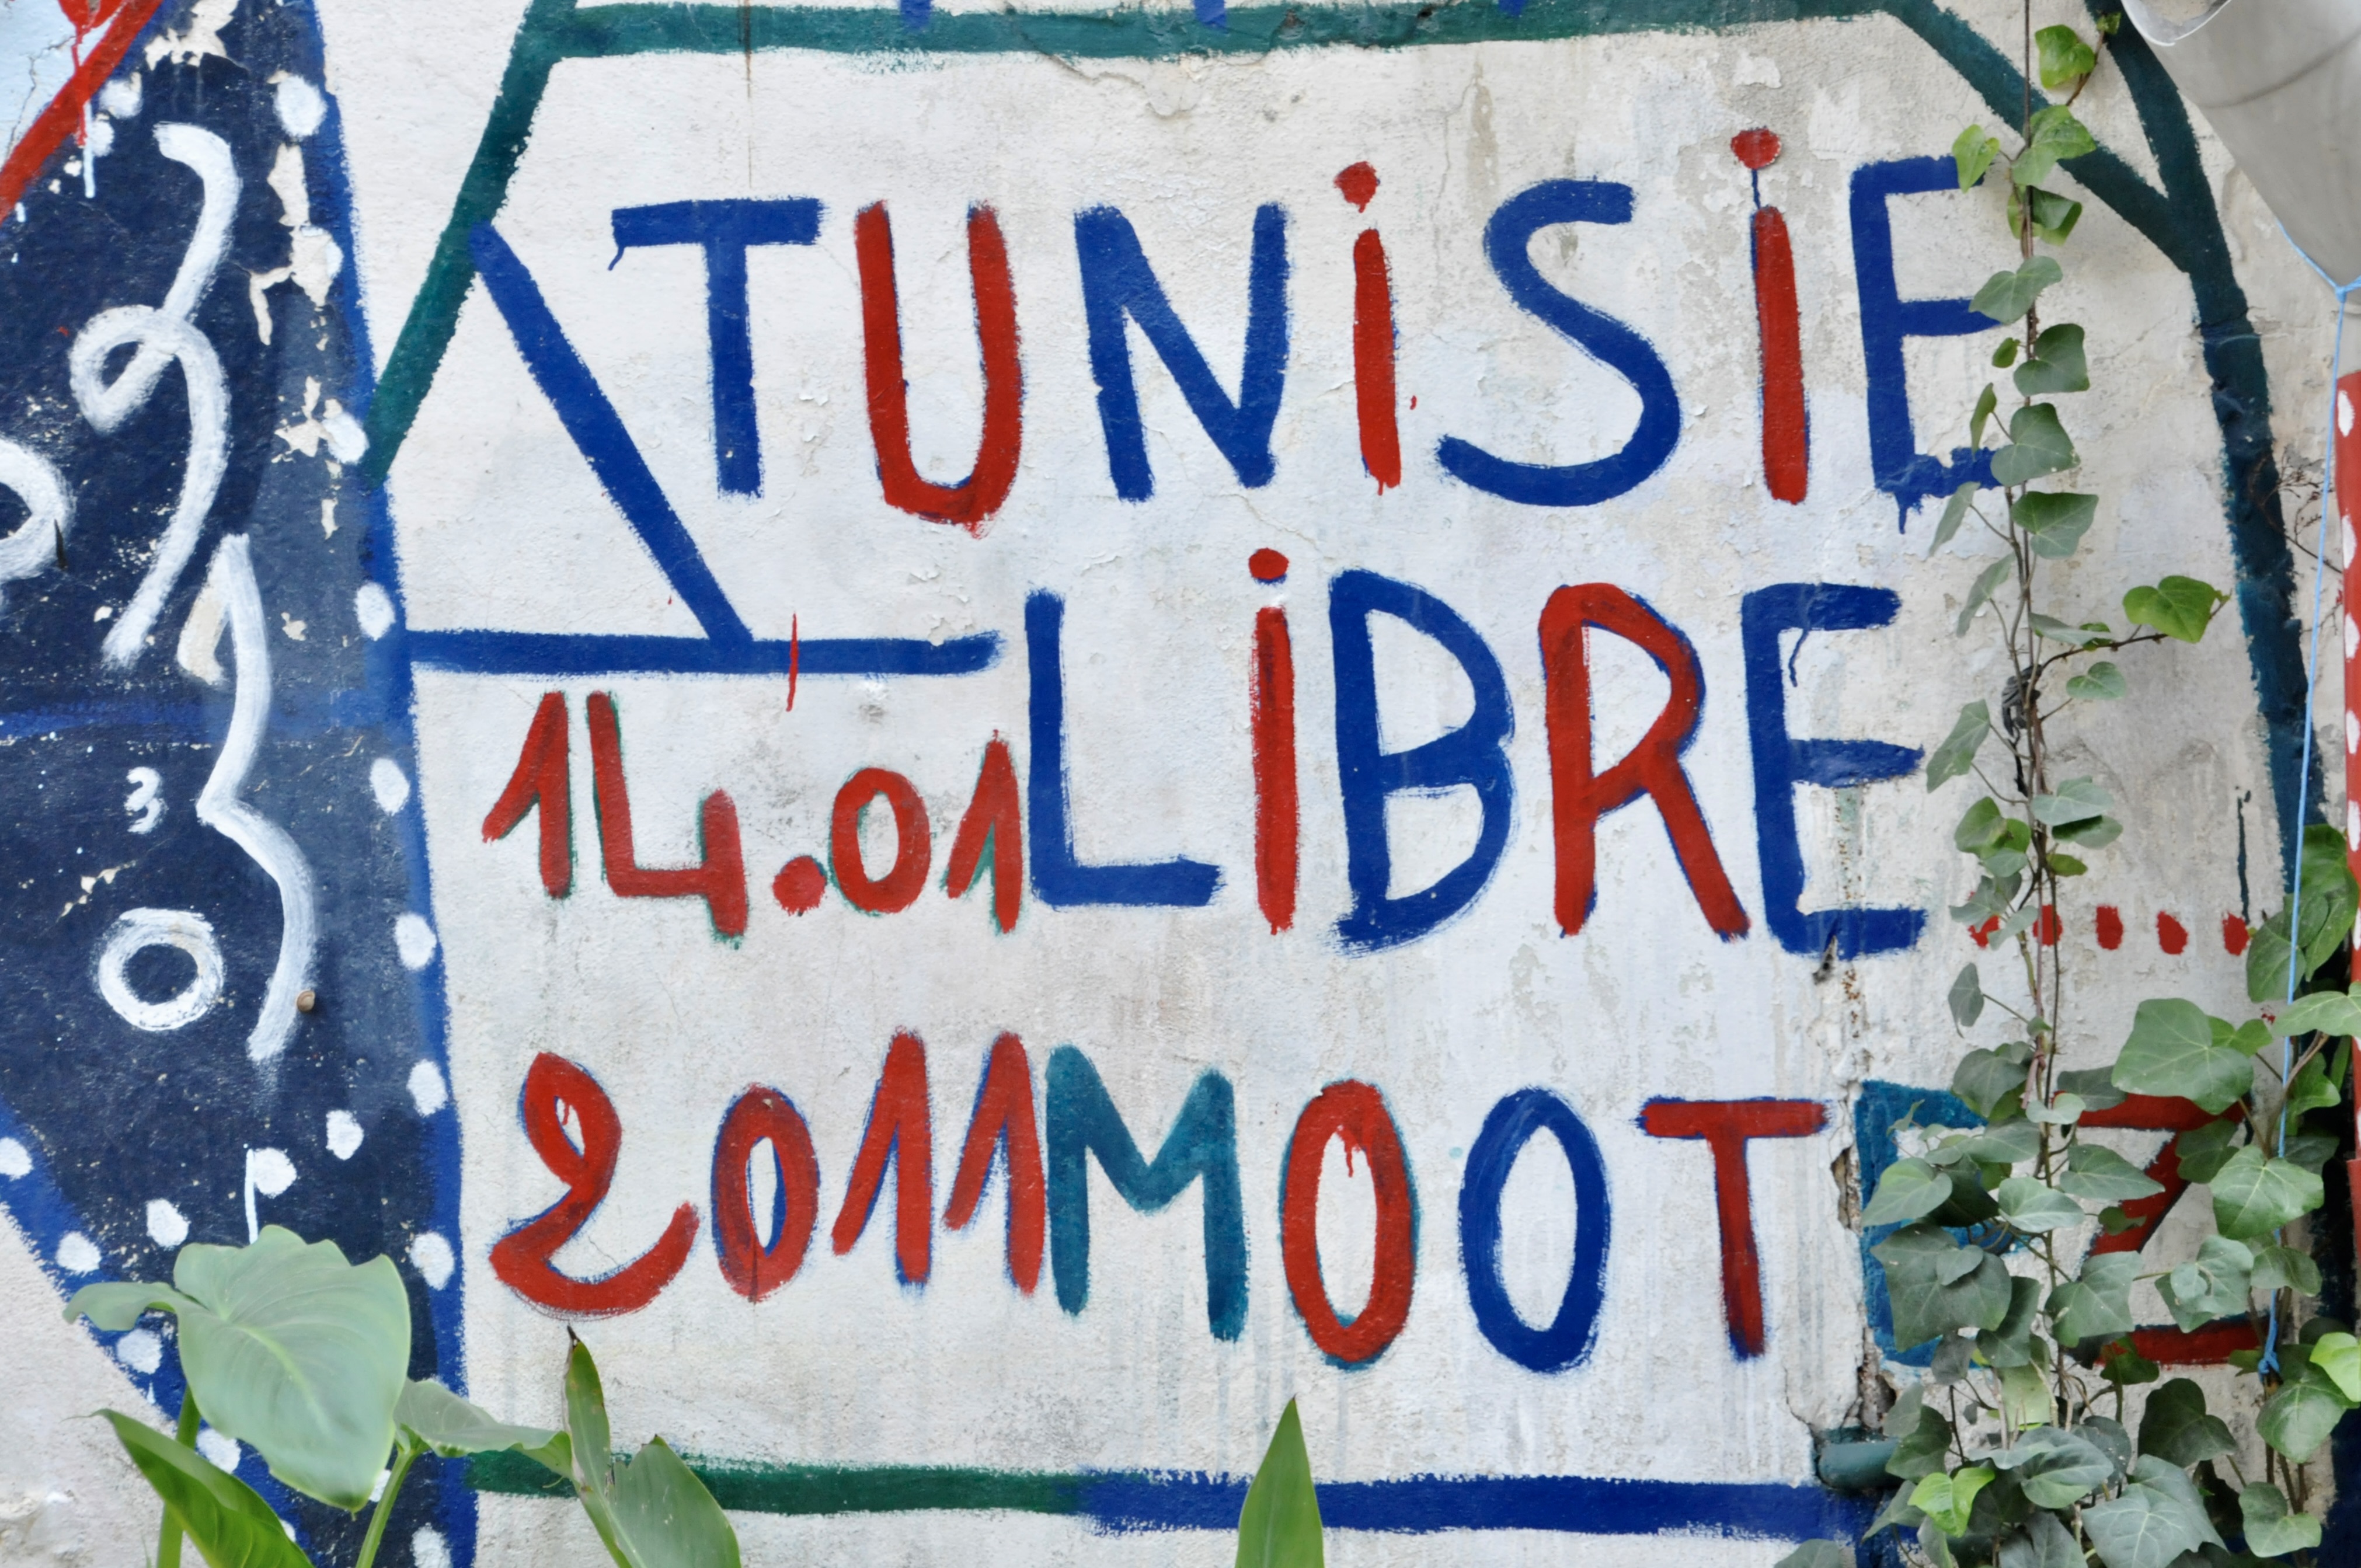 TUNiSiE
14.01 LiBRE.....
2011 MOOTEZ